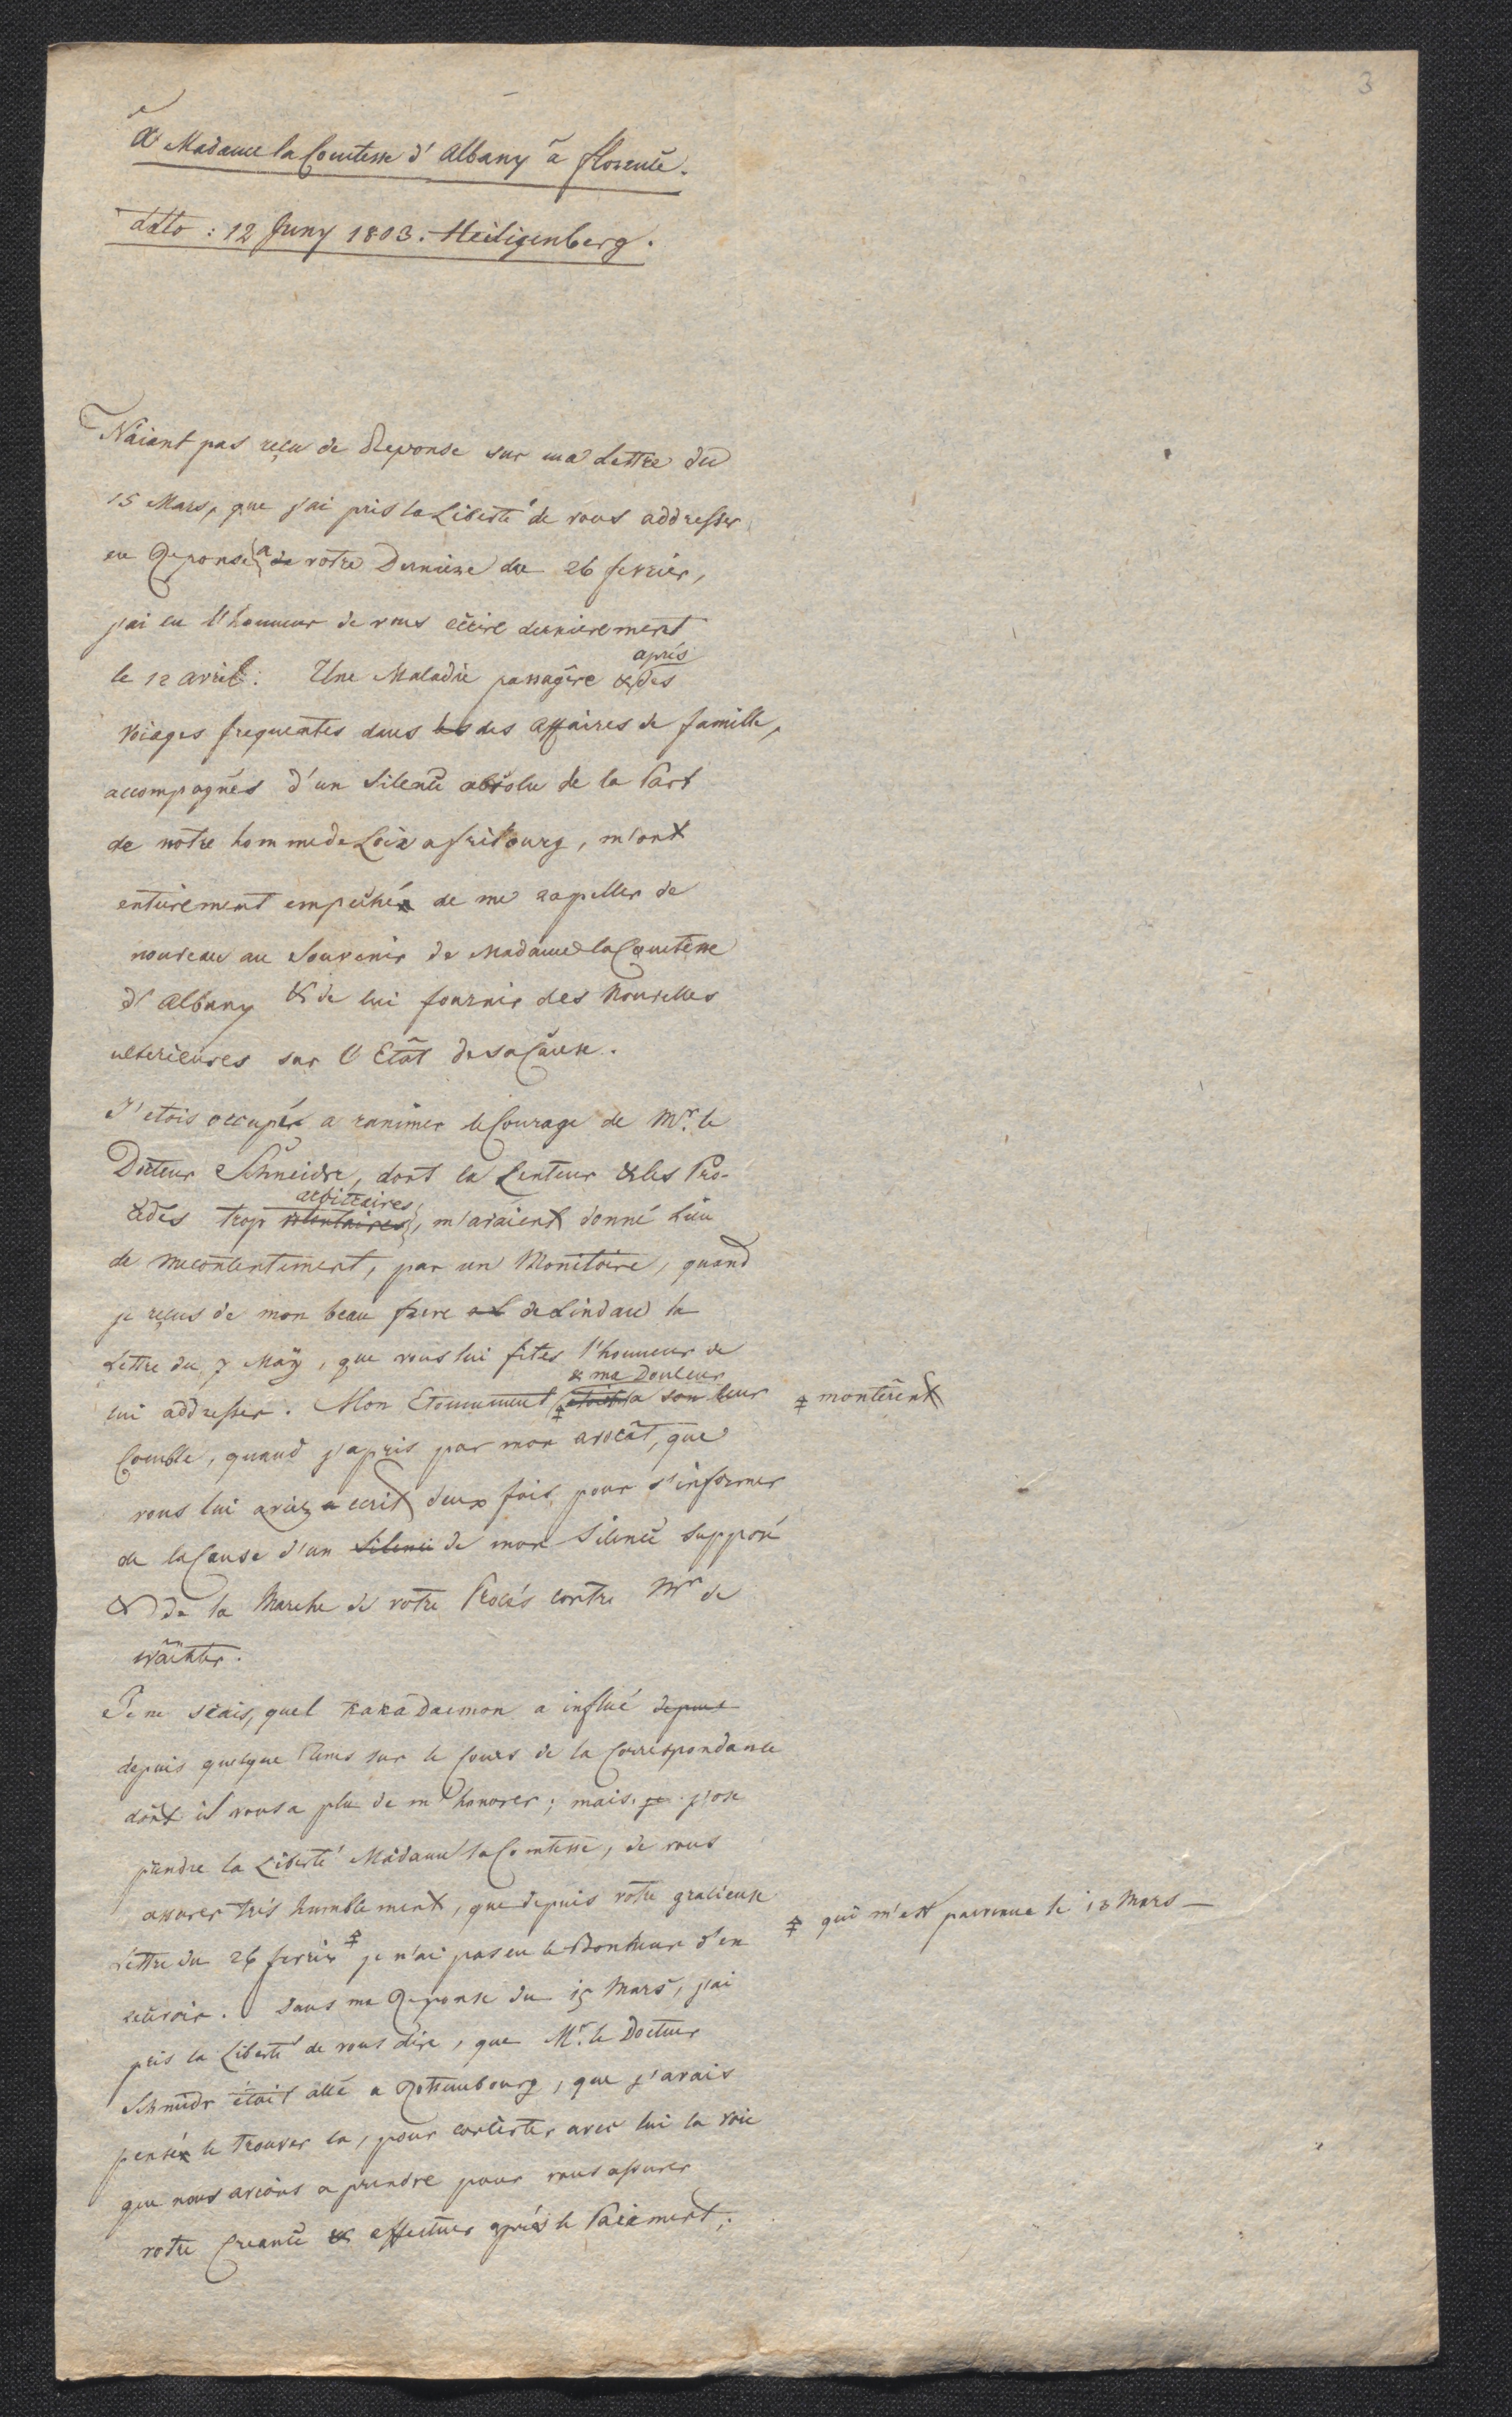 3
A Madame la Comtesse d'Albany à florence.
dato: 12 Juny 1803. Heiligenberg.
N'aiant pas reçu de Reponse sur ma Lettre du
15 Mars, que j'ai pris la Liberté de vous addresser
en Reponse a de votre Derniere du 26 fevrier,
j'ai eu l'honneur de vous ecrire dernierement
le 12 avril. Une Maladie passagère & après des
Voiages frequentes dans les des affaires de famille,
accompagnés d'un Silence absolu de la Part
de notre homme de Loix a fribourg, m'ont
entierement empeché de me rapeller de
nouveau au Souvenir de Madame la Comtesse
d'Albany & de lui fournir des Nouvelles
ulterieures sur l'Etât de sa Cause.
J'etois occupé a ranimer le Courage de Mr. le
Docteur Schneidr, dont la Lenteur & les Pro-
cedés trop volontaires arbitraires, m'avaient donné Lieu
de mecontentement, par un Monitoire, quand
je reçus de mon beau frere de Lindau la
Lettre du 7 Maÿ, que vous lui fites l'honneur de
lui addresser. Mon Etonnement & ma Douleur ‡ etoit a son leur
‡ montèrent
Comble, quand j'apris par mon avocât, que
vous lui aviez ecrit deux fois, pour s'informer
de la Cause d'un Silence de mon Silence supposé
& de la Marche de votre Procés contre Mr de
Wächter.
Je ne scais, quel Kakadaemon a influé depuis
depuis quelque tems sur le Cours de la Correspondance
dont il vous a plu de m'honorer; mais je j'ose
prendre la Liberté Madame la Comtesse, de vous
assurer très humblement, que depuis votre gracieuse
Lettre du 26 fevrier ‡ je n'ai pas eu le Bonheur d'en
‡ qui m'est parvenue le 13 Mars —
recevoir. Dans ma Reponse du 15 Mars, j'ai
pris la Liberté de vous dire, que Mr. le Docteur
Schneidr étoit allé a Rottenbourg, que j'avais
pensé le trouver la, pour concerter avec lui la voie
que nous avions a prendre pour vous assurer
votre Creance & effectuer après le Paiement;